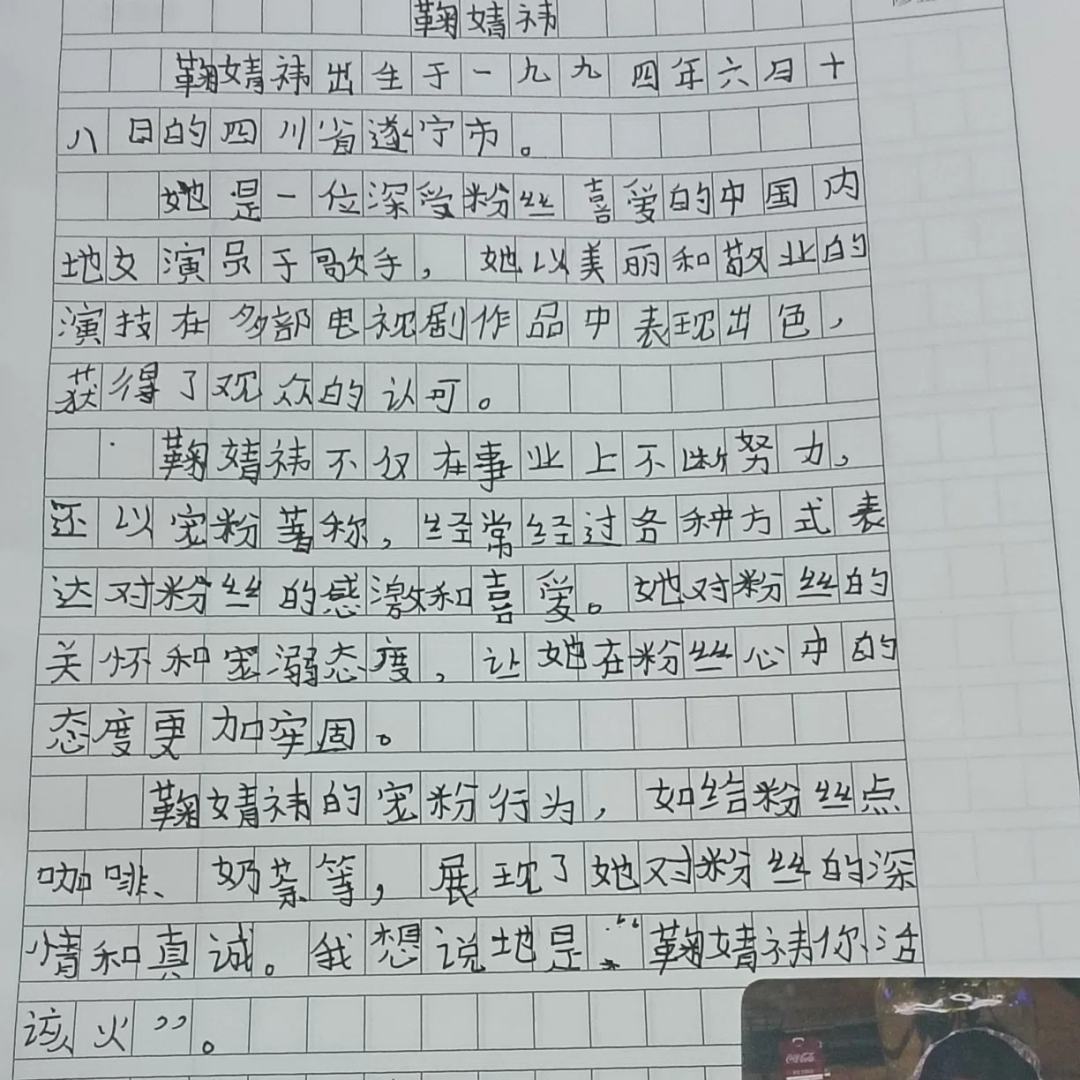 鞠婧祎
鞠婧祎出生于一九九四年六月十
八日的四川省遂宁市。
她是一位深受粉丝喜爱的中国内
地女演员于歌手，她以美丽和敬业的
演技在多部电视剧作品中表现出色，
获得了观众的认可。
鞠婧祎不仅在事业上不断努力，
还以宠粉著称，经常经过各种方式表
达对粉丝的感激和喜爱。她对粉丝的
关怀和宠溺态度，让她在粉丝心中的
态度更加牢固。
鞠婧祎的宠粉行为，如给粉丝点
咖啡、奶茶等，展现了她对粉丝的深
情和真诚。我想说地是：“鞠婧祎你活
该火”。
Coca-Cola